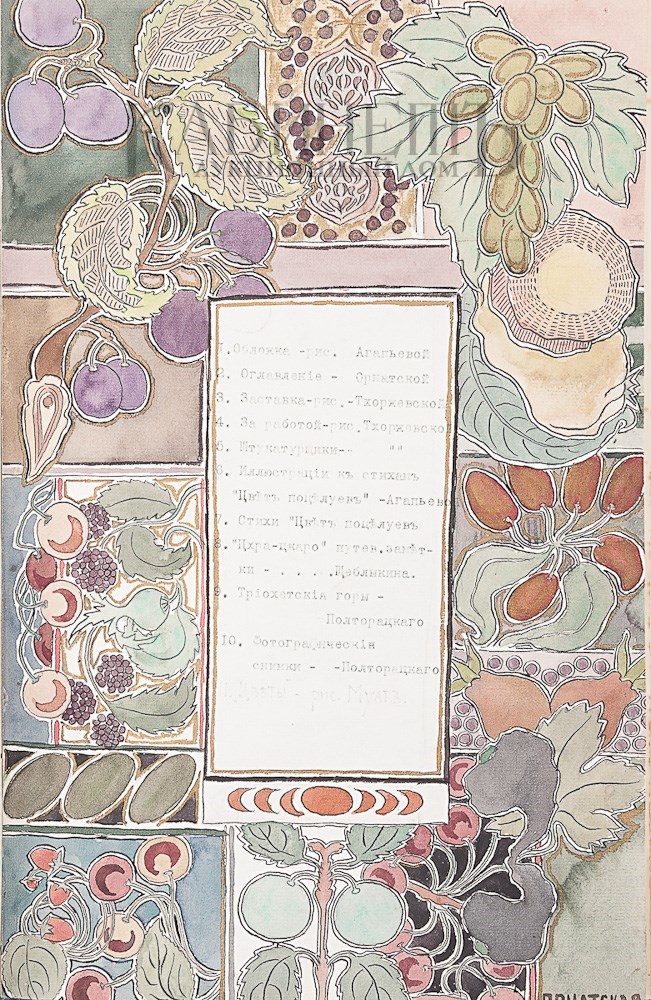 КАБИНЕТЪ
АУКЦИОННЫЙ ДОМ
1. Обложка -рис. Агапьевой
2. Оглавленіе - Орнатской
3. Заставка-рис.-Тхоржевской
4. За работой-рис.Тхоржевско
5. Штукатурщики-- "
6. Иллюстраціи къ стихамъ
"Цвѣтъ поцѣлуевъ" -Агапьево
7. Стихи "Цвѣтъ поцѣлуевъ
8. "Цхра-цкаро" путев.замѣт-
ки - . . . . .Щеблыкина.
9. Тріохетскія горы -
Полторацкаго
10. Фотографическія
снимки - -Полторацкаго
Цвѣты - рис.
ОРНАТСКАЯ